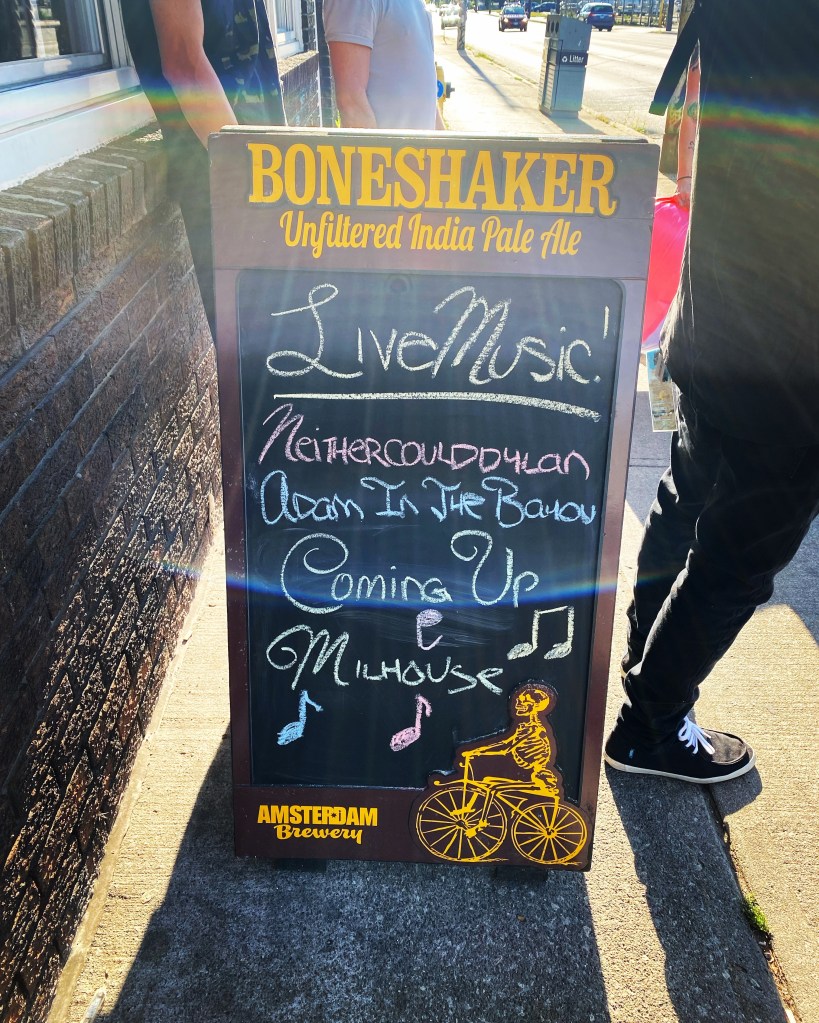 Litter
BONESHAKER
Unfiltered India Pale Ale
Live Music!
NEITHERCOULDDYLAN
ADAM IN THE BAYOU
COMING UP
@
MILHOUSE
AMSTERDAM
Brewery